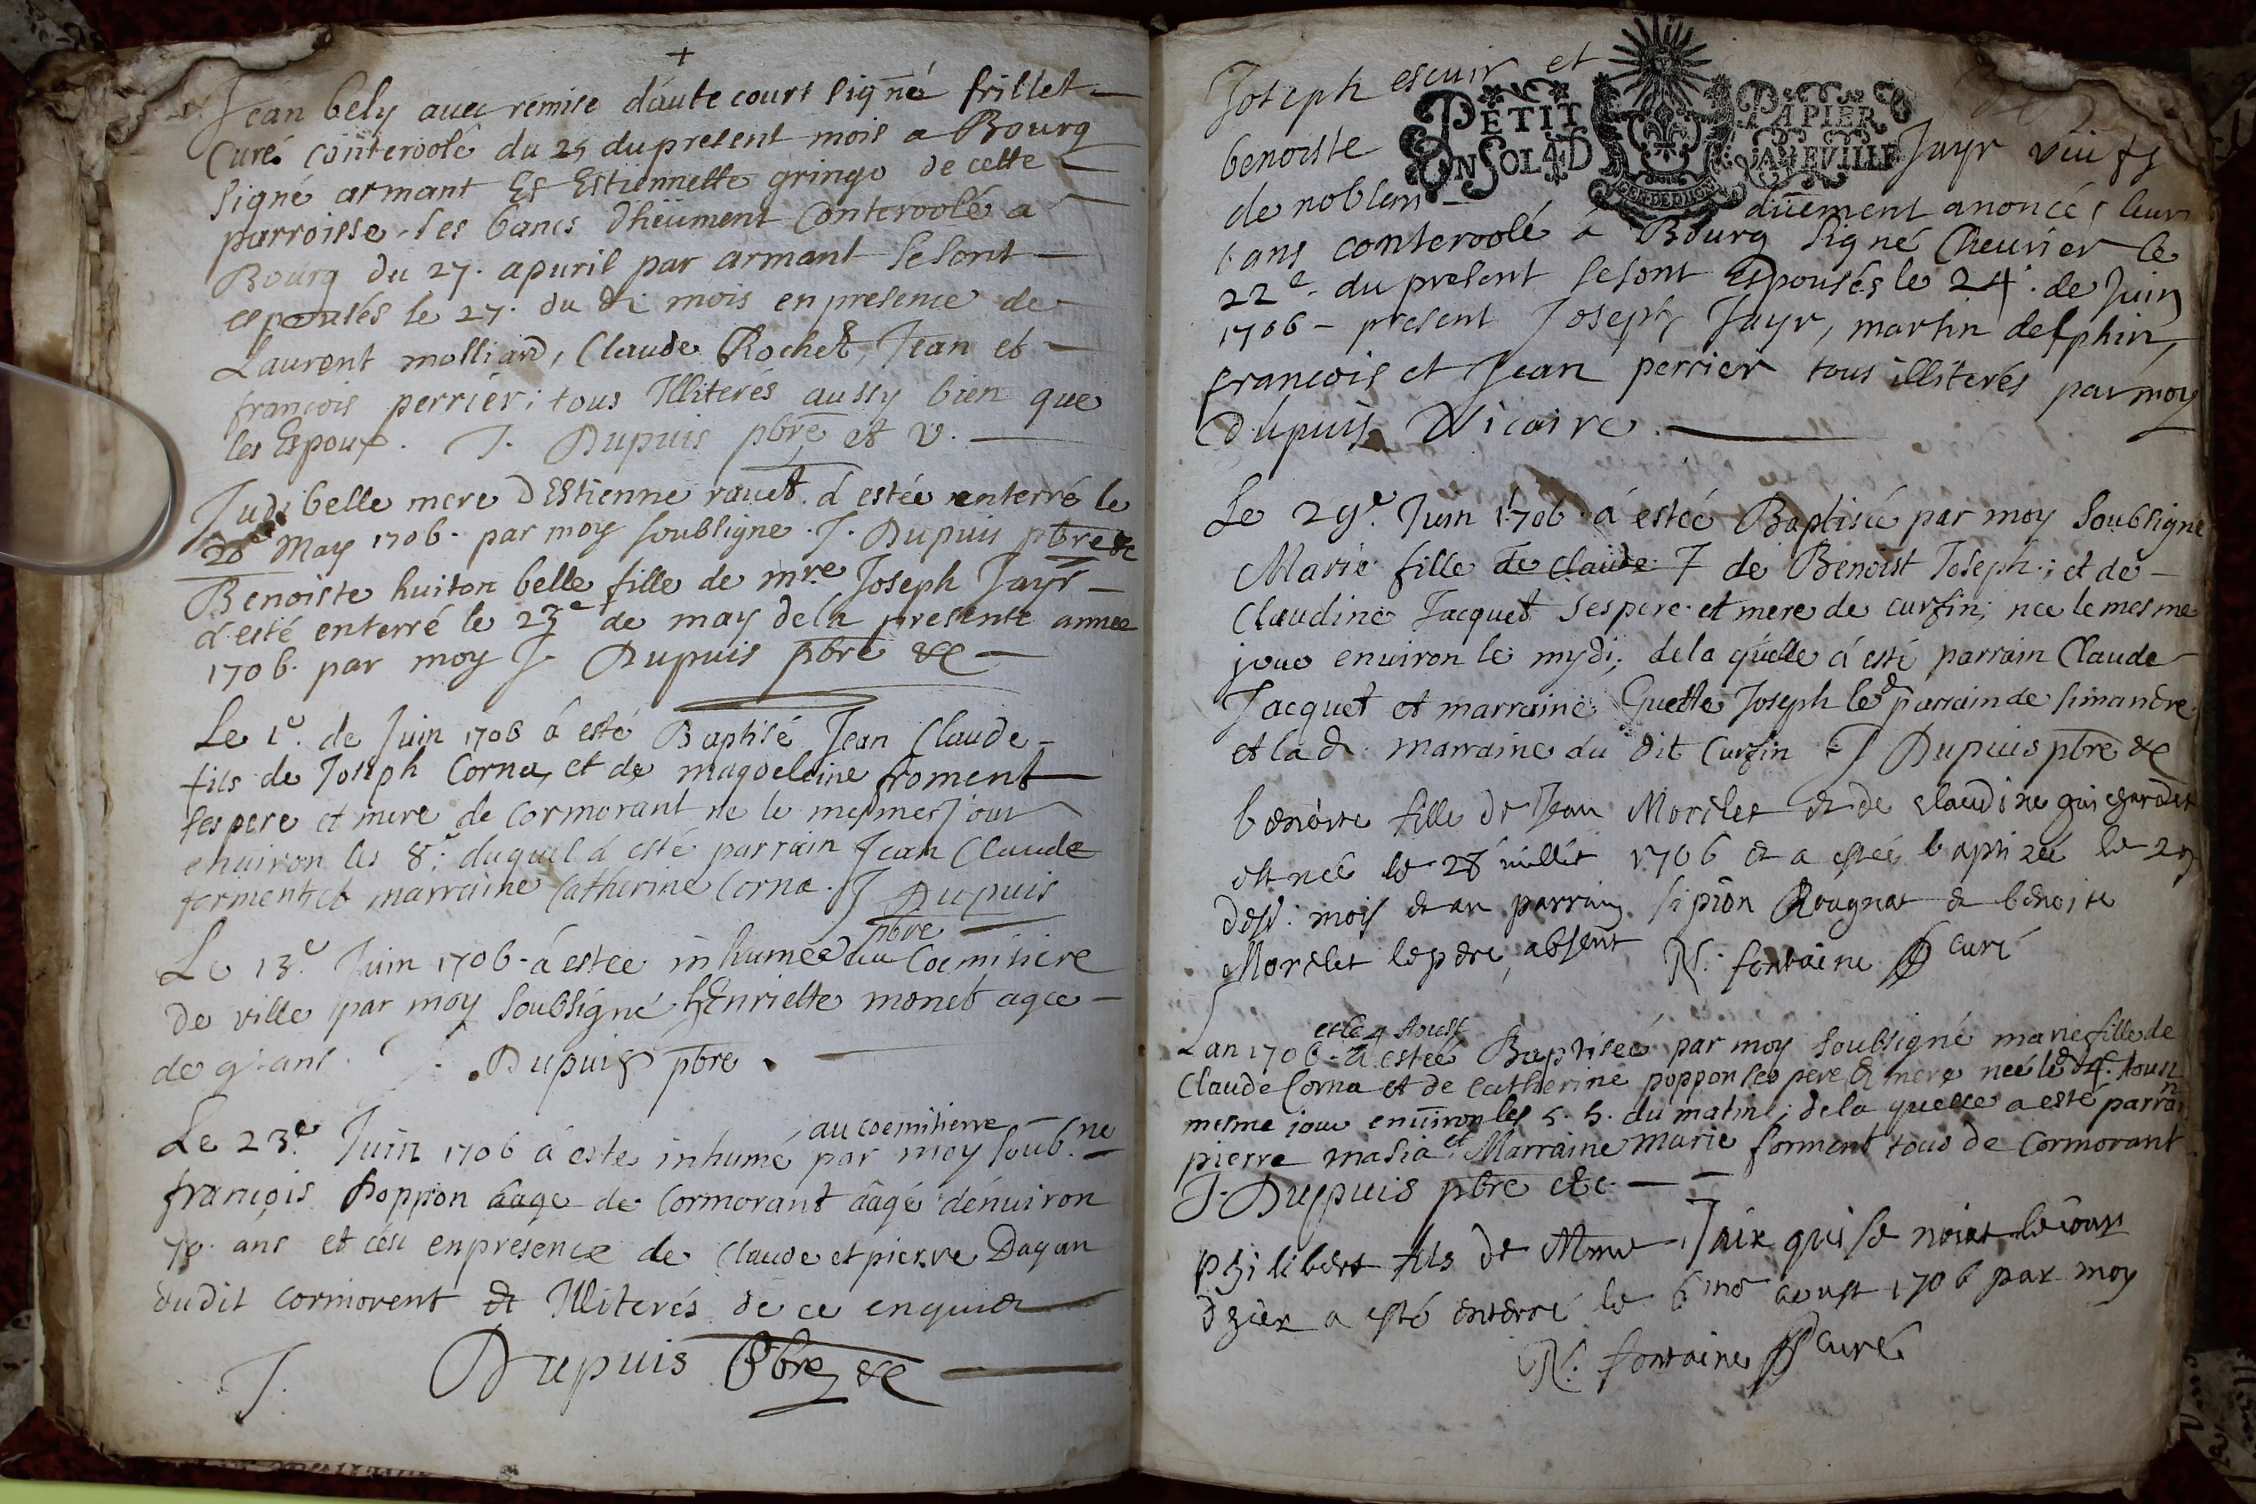 +
Jean bely avec remise dáutecourt signé frillet
Curé conteroolé du 25 du present mois a Bourg
signé armant Et Estiennette gringo de cette
parroisse, ses bancs dhëument Conteroolé a
Bourg du 27. apuril par armant se sont
espousés le 27. du dt mois en presence de
Laurent molliand, Claude Rochet, Jean et
françois perrier; tous Illiterés aussy bien que
les Espoux. J. Dupuis pbre et v.
Judi belle mere d'Estienne rauet á estée enterré le
20e May 1706. par moy soubsigne. J. Dupuis pbre &c
Benoiste huiton belle fille de mre Joseph Jayr
á esté enterré le 23e de may de la presente annee
1706. par moy J. Dupuis pbre &c
Le 1e. de Juin 1706 á esté Baptisé Jean Claude
fils de Joseph Corna, et de magdeleine froment
ses pere et mere de Cormorant ne le mesmes Jour
enuiron les 8: duquel á esté parrain Jean Claude
forment, et marraine Catherine Corna. J Dupuis
pbre
Le 13e. Juin 1706 - á estee inhumée du Coemitiere
de ville par moy soubsigné henriette monet agee
de ans. J. Dupuis pbre.
au coemitierre
Le 23e. Juin 1706 á este inhumé par moy soub.ne
françois Poppon âage de Cormorant âagé dénuiron
70. ans et cési en presence de Claude et pierre Dagan
dudit cormorent et Illiterés de ce enquis
J. Dupuis Pbre &c
Joseph escuir et
PETIT PAPIER
UN SOL 4 D LA FEUILLE
benoiste Jayr
de noblens düement anoncés leurs
bans conteroolé á Bourg signé Cheurier le
22e. du present se sont Espousés le 24. de Juin
1706 - present Joseph Jayr, martin delphin,
françois et Jean perrier tous illiterés par moy
Dupuis Vicaire.
Le 29e. Juin 1706 á estée Baptisée par moy soubsigne
Marie fille de Claude J de Benoist Joseph; et de
Claudine Jacquet ses pere et mere de curfin; nee le mesme
jour enuiron le mydi; de la quelle á esté parrain Claude
Jacquet et marraine Guette Joseph led parrain de simandre
et la d. marraine du dit Curfin J Dupuis pbre &c
benoite fille de Jean Morelet et de claudine
est nee le 28 1706 et a estée baptizée le 29
dud. mois et an parrain sipion Rougnat et benoite
Morelet le pere absent N. fontaine curé
et le 4 Aoust
Lan 1706 - á estée Baptiseé par moy soubsigné marie fille de
Claude Corna et de catherine poppon ses pere et mere neé le d 4e. Aoust
mesme jour enuiron les 5. h. du matin; de la quelle a esté parrain
pierre masia et Marraine marie forment tous de Cormorant
J. Duppuis pbre etc.
philibert fils de Jaix qui se noiat le jour
dhier a esté enterré le 6me aoust 1706 par moy
N. fontaine curé